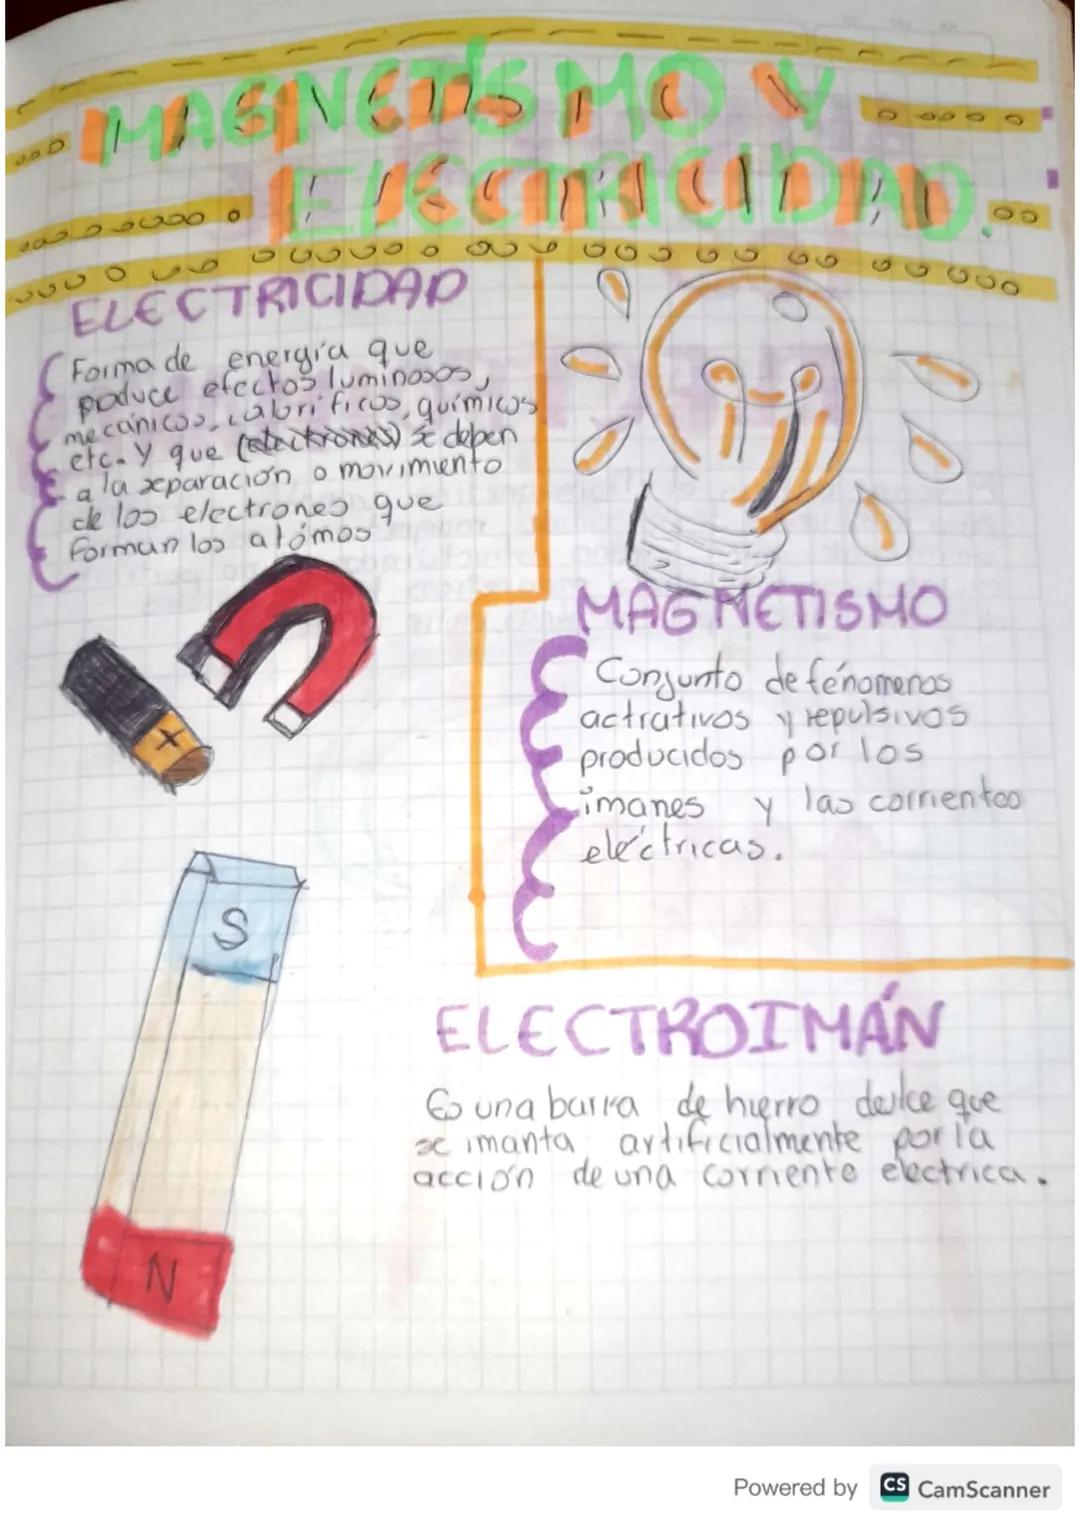 MAGNETISMO Y
ELECTRICIDAD.
ELECTRICIDAD
Forma de energía que
produce efectos luminosos,
mecánicos, caloríficos, químicos
etc. y que (electrones) se deben
a la separación o movimiento
de los electrones que
Forman los atómos
X
S
N
MAGNETISMO
Conjunto de fénomenos
actrativos y repulsivos
producidos por los
imanes y las corrientes
eléctricas.
ELECTROIMÁN
Es una barra de hierro dulce que
se imanta artificialmente por la
acción de una corriente electrica.
Powered by CS CamScanner